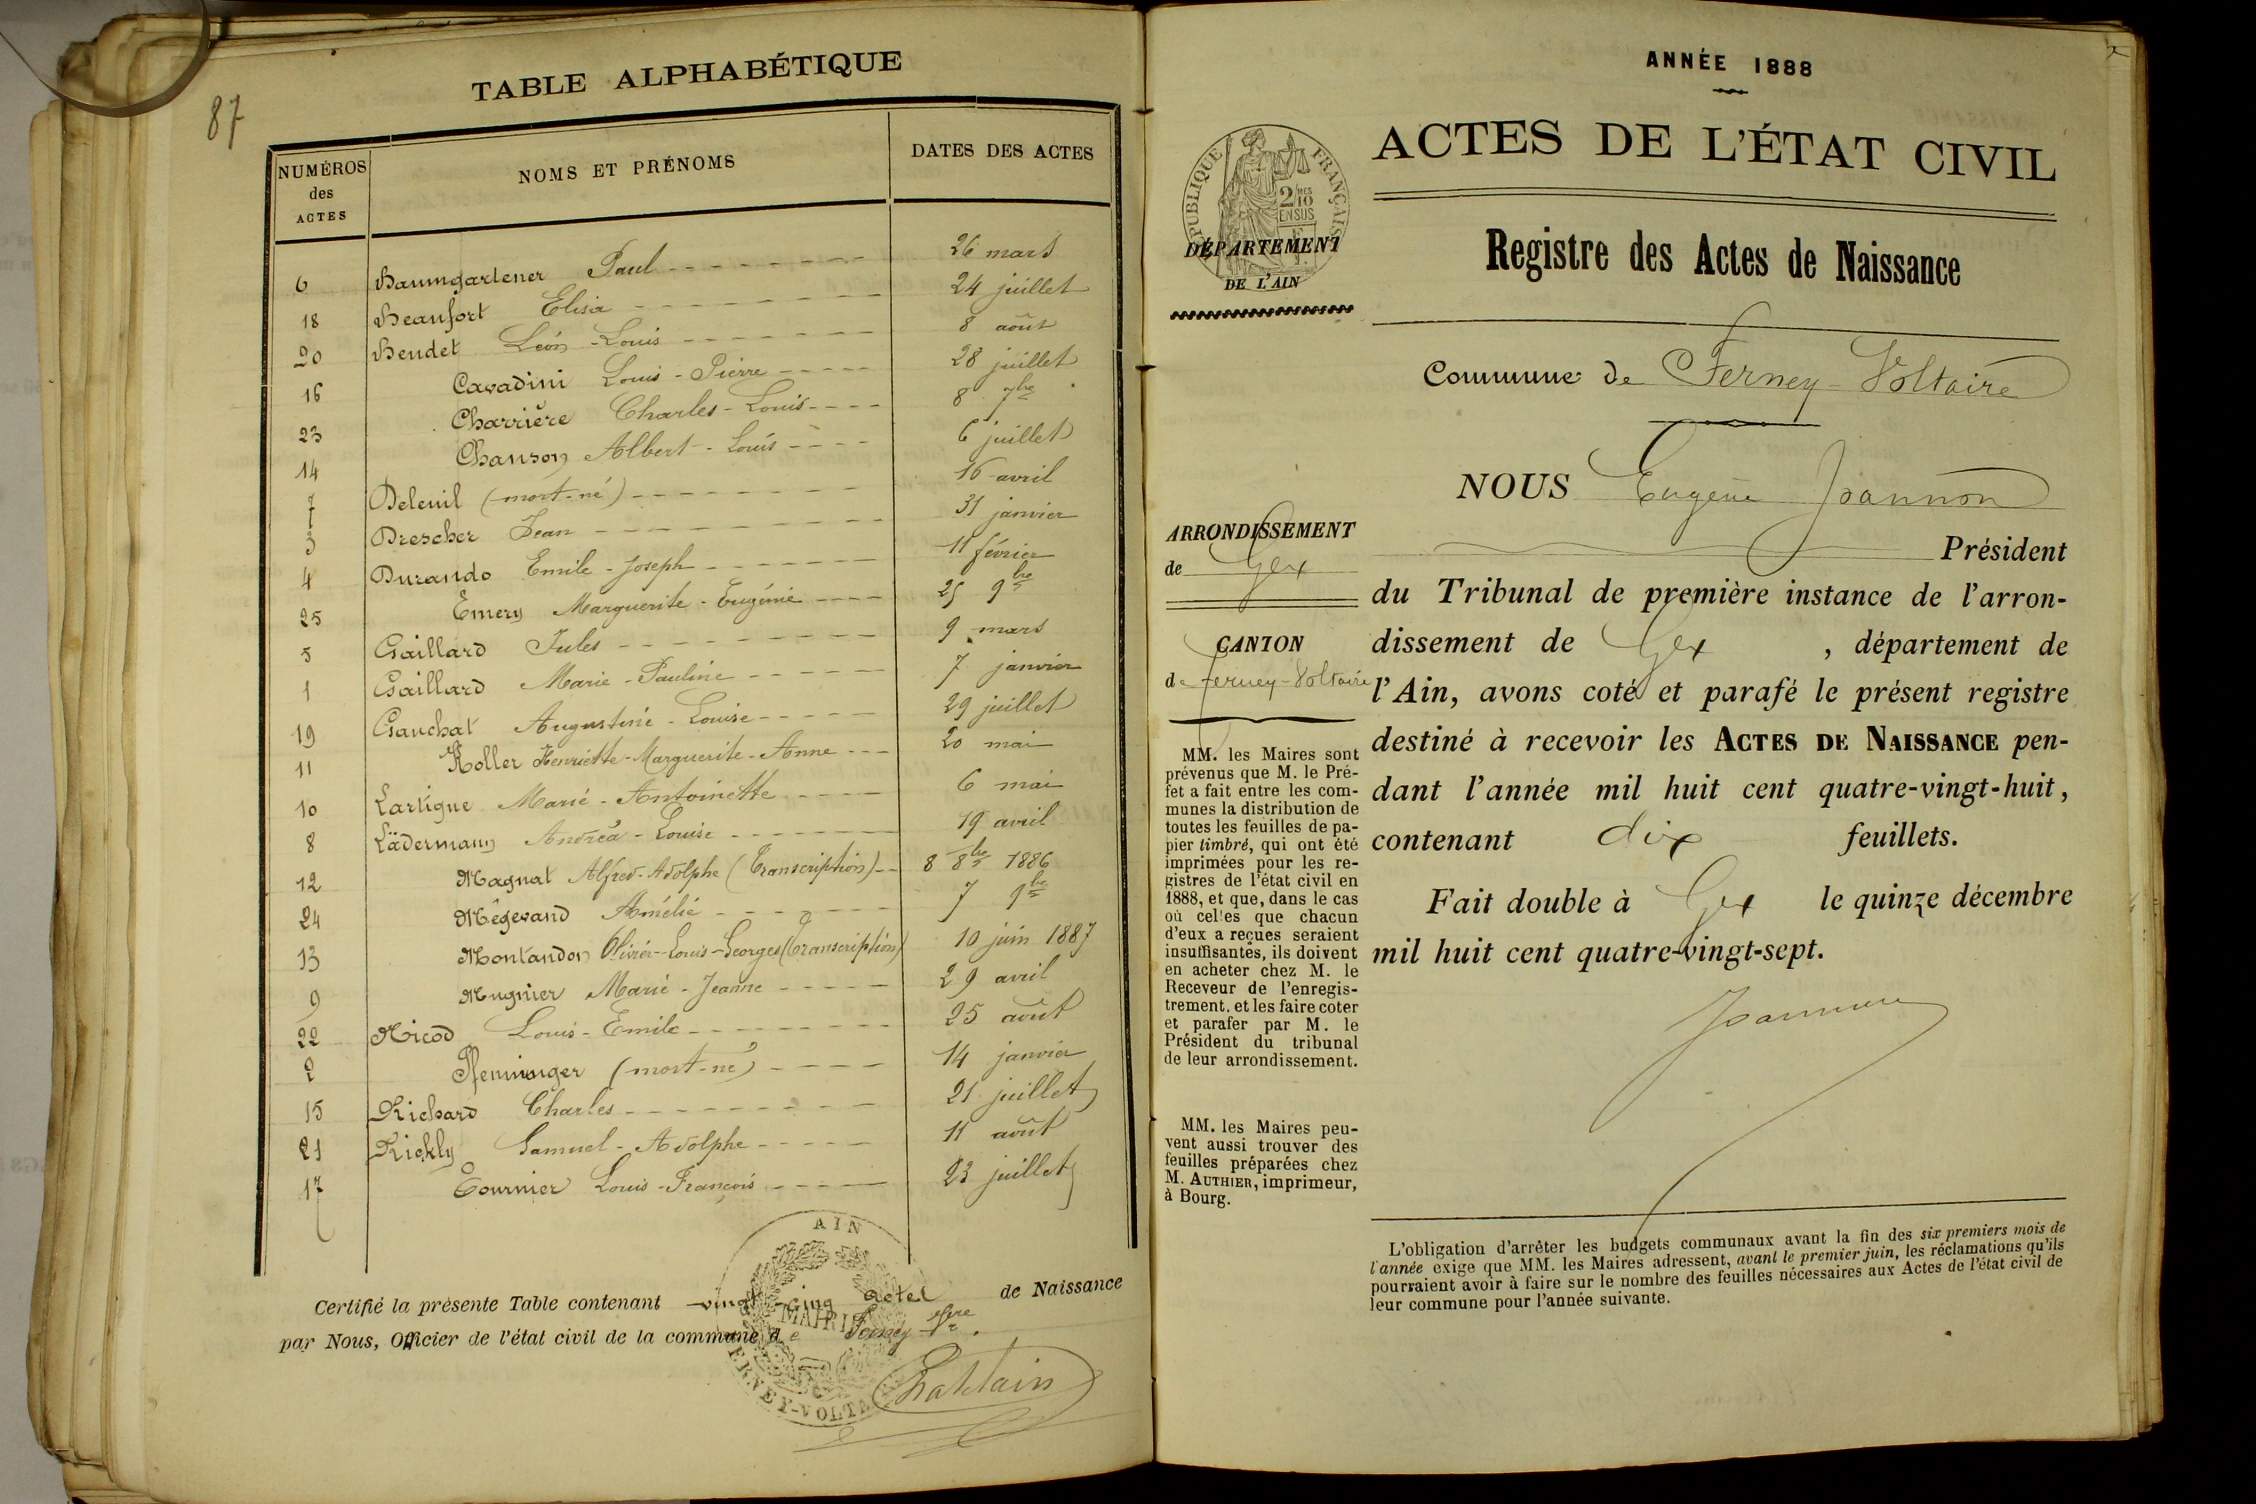 87
TABLE ALPHABÉTIQUE
NUMÉROS des ACTES
NOMS ET PRÉNOMS
DATES DES ACTES
6 Baumgartener Paul 26 mars
18 Beaufort Elisa 24 juillet
20 Bendet Léon-Louis 8 août
16 Cavadini Louis-Pierre 28 juillet
23 Charrière Charles-Louis 8 7bre
14 Chanson Albert-Louis 6 juillet
7 Deleuil (mort-né) 16 avril
3 Drescher Jean 31 janvier
4 Durando Emile-Joseph 11 février
25 Emery Marguerite-Eugénie 25 9bre
5 Gaillard Jules 9 mars
1 Gaillard Marie-Pauline 7 janvier
19 Gauchat Augustine-Louise 29 juillet
11 Koller Henriette-Marguerite-Anne 20 mai
10 Lartigue Marie-Antoinette 6 mai
8 Lädermann Andréa-Louise 19 avril
12 Magnat Alfred-Adolphe (Transcription) 8 8bre 1886
24 Mégevand Amélie 7 9bre
13 Montandon Olivier-Louis-Georges (Transcription) 10 juin 1887
9 Mugnier Marie-Jeanne 29 avril
22 Nicod Louis-Emile 25 août
2 Pfenninger (mort-né) 14 janvier
15 Richard Charles 21 juillet
21 Rickly Samuel-Adolphe 11 août
17 Tournier Louis-François 23 juillet
AIN
MAIRIE
FERNEY-VOLTA
Certifié la présente Table contenant vingt-cinq actes de Naissance
par Nous, Officier de l'état civil de la commune de Ferney-Vre.
ANNÉE 1888
ACTES DE L'ÉTAT CIVIL
RÉPUBLIQUE FRANÇAISE
2/10 EN SUS
DÉPARTEMENT
DE L'AIN
Registre des Actes de Naissance
Commune de Ferney-Voltaire
NOUS Eugène Joannon
Président
du Tribunal de première instance de l'arron-
dissement de Gex, département de
l'Ain, avons coté et parafé le présent registre
destiné à recevoir les ACTES DE NAISSANCE pen-
dant l'année mil huit cent quatre-vingt-huit,
contenant dix feuillets.
Fait double à Gex le quinze décembre
mil huit cent quatre-vingt-sept.
Joannon
ARRONDISSEMENT
de Gex
CANTON
de Ferney-Voltaire
MM. les Maires sont
prévenus que M. le Pré-
fet a fait entre les com-
munes la distribution de
toutes les feuilles de pa-
pier timbré, qui ont été
imprimées pour les re-
gistres de l'état civil en
1888, et que, dans le cas
où celles que chacun
d'eux a reçues seraient
insuffisantes, ils doivent
en acheter chez M. le
Receveur de l'enregis-
trement, et les faire coter
et parafer par M. le
Président du tribunal
de leur arrondissement.
MM. les Maires peu-
vent aussi trouver des
feuilles préparées chez
M. AUTHIER, imprimeur,
à Bourg.
L'obligation d'arrêter les budgets communaux avant la fin des six premiers mois de
l'année exige que MM. les Maires adressent, avant le premier juin, les réclamations qu'ils
pourraient avoir à faire sur le nombre des feuilles nécessaires aux Actes de l'état civil de
leur commune pour l'année suivante.